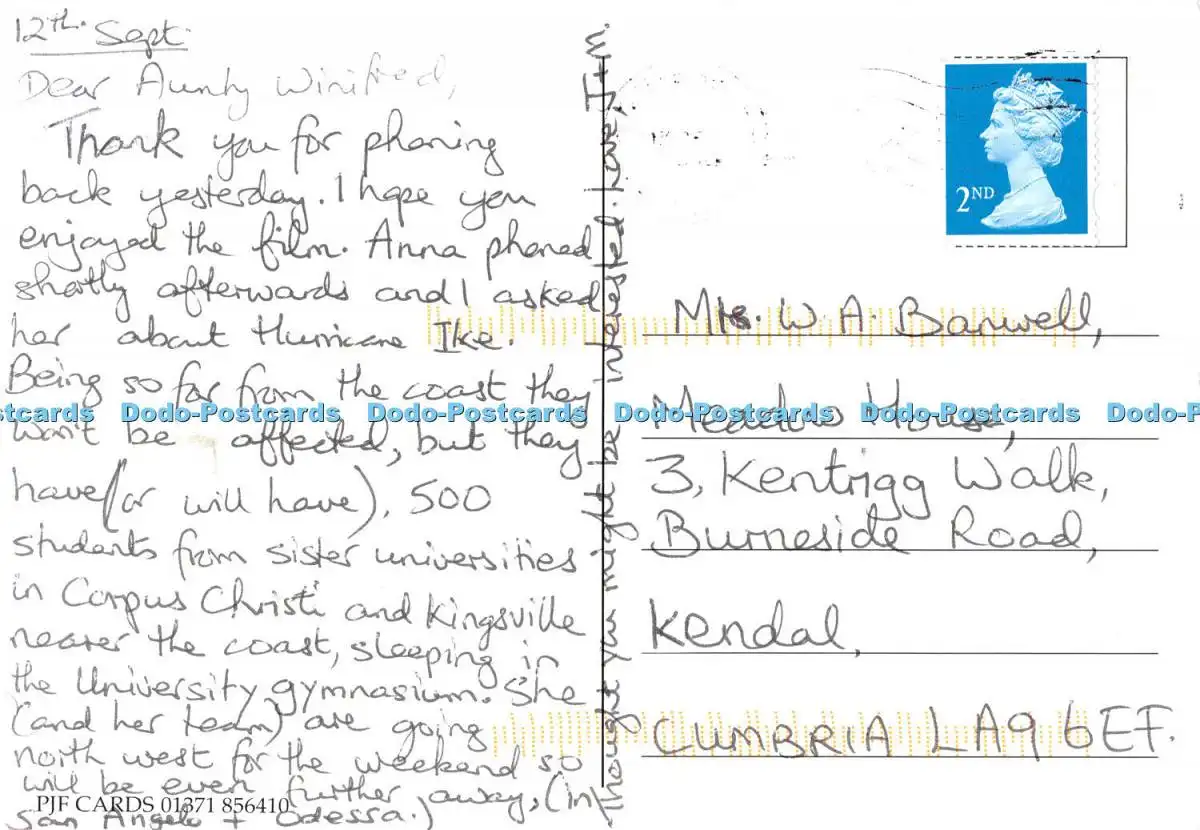 12th Sept.
Dear Aunty Winifred,
Thank you for phoning
back yesterday. I hope you
enjoyed the film. Anna phoned
shortly afterwards and I asked
her about Hurricane Ike.
Being so far from the coast they
won't be affected, but they
have (or will have), 500
students from sister universities
in Corpus Christi and Kingsville
nearer the coast, sleeping in
the University gymnasium. She
(and her team) are going
north west for the weekend so
will be even further away, (in
San Angelo + Odessa.)
Thought you might be interested. Love,
PJF CARDS 01371 856410
2ND
Mrs. W. A. Barwell,
Meadow House,
3, Kentrigg Walk,
Burneside Road,
Kendal,
CUMBRIA LA9 6EF.
stcards Dodo-Postcards Dodo-Postcards Dodo-Postcards Dodo-Postcards Dodo-P